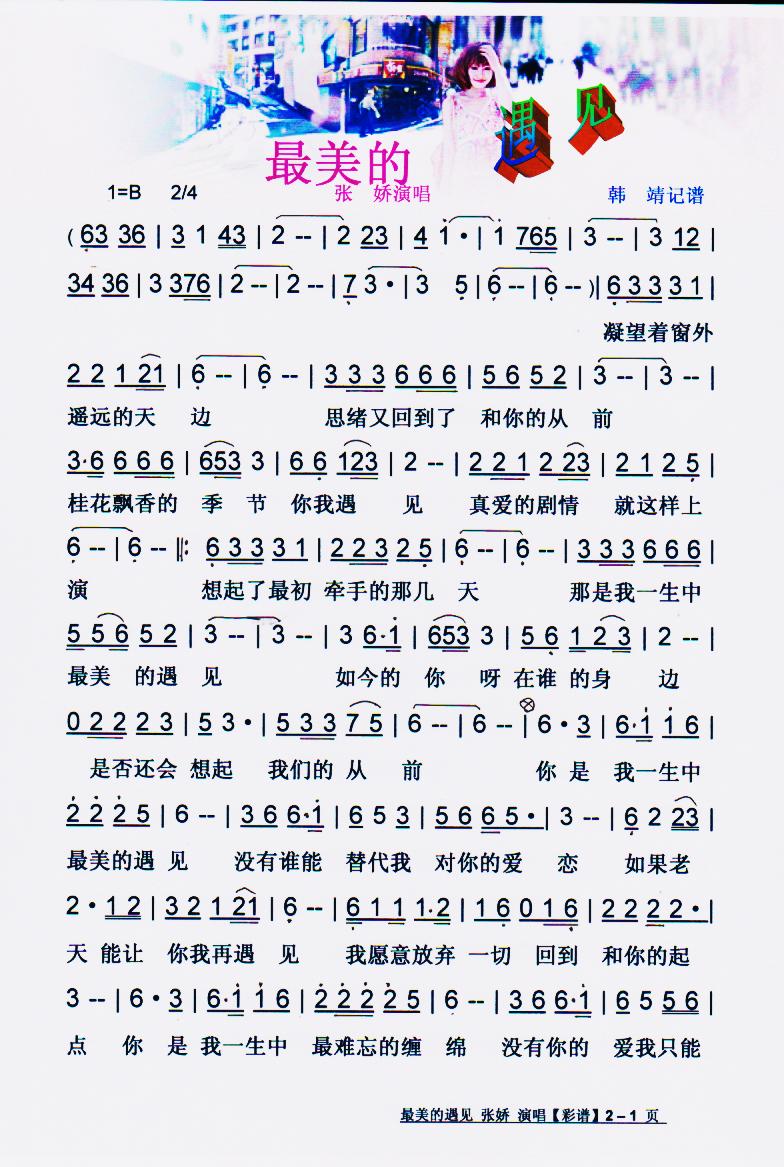 最美的 遇见
1=B 2/4 张 娇演唱 韩 靖记谱
( 63 36 | 3 1 43 | 2 -- | 2 23 | 4 1 • | 1 765 | 3 -- | 3 12 |
34 36 | 3 376 | 2 -- | 2 -- | 7 3 • | 3 5 | 6 -- | 6 -- ) | 6 3 3 3 1 |
凝望着窗外
2 2 1 21 | 6 -- | 6 -- | 3 3 3 6 6 6 | 5 6 5 2 | 3 -- | 3 -- |
遥远的天 边 思绪又回到了 和你的从 前
3·6 6 6 6 | 653 3 | 6 6 123 | 2 -- | 2 2 1 2 23 | 2 1 2 5 |
桂花飘香的 季 节 你我遇 见 真爱的剧情 就这样上
6 -- | 6 -- ‖: 6 3 3 3 1 | 2 2 3 2 5 | 6 -- | 6 -- | 3 3 3 6 6 6 |
演 想起了最初 牵手的那几 天 那是我一生中
5 5 6 5 2 | 3 -- | 3 -- | 3 6·1 | 653 3 | 5 6 1 2 3 | 2 -- |
最美 的遇 见 如今的 你 呀 在谁 的身 边
0 2 2 2 3 | 5 3 • | 5 3 3 7 5 | 6 -- | 6 -- | 6 • 3 | 6·1 1 6 |
是否还会 想起 我们的 从 前 你 是 我一生中
2 2 2 5 | 6 -- | 3 6 6·1 | 6 5 3 | 5 6 6 5 • | 3 -- | 6 2 23 |
最美的遇 见 没有谁能 替代我 对你的爱 恋 如果老
2 • 1 2 | 3 2 1 21 | 6 -- | 6 1 1 1·2 | 1 6 0 1 6 | 2 2 2 2 • |
天 能让 你我再遇 见 我愿意放弃 一切 回到 和你的起
3 -- | 6 • 3 | 6·1 1 6 | 2 2 2 2 5 | 6 -- | 3 6 6·1 | 6 5 5 6 |
点 你 是 我一生中 最难忘的缠 绵 没有你的 爱我只能
最美的遇见 张娇 演唱【彩谱】2－1 页